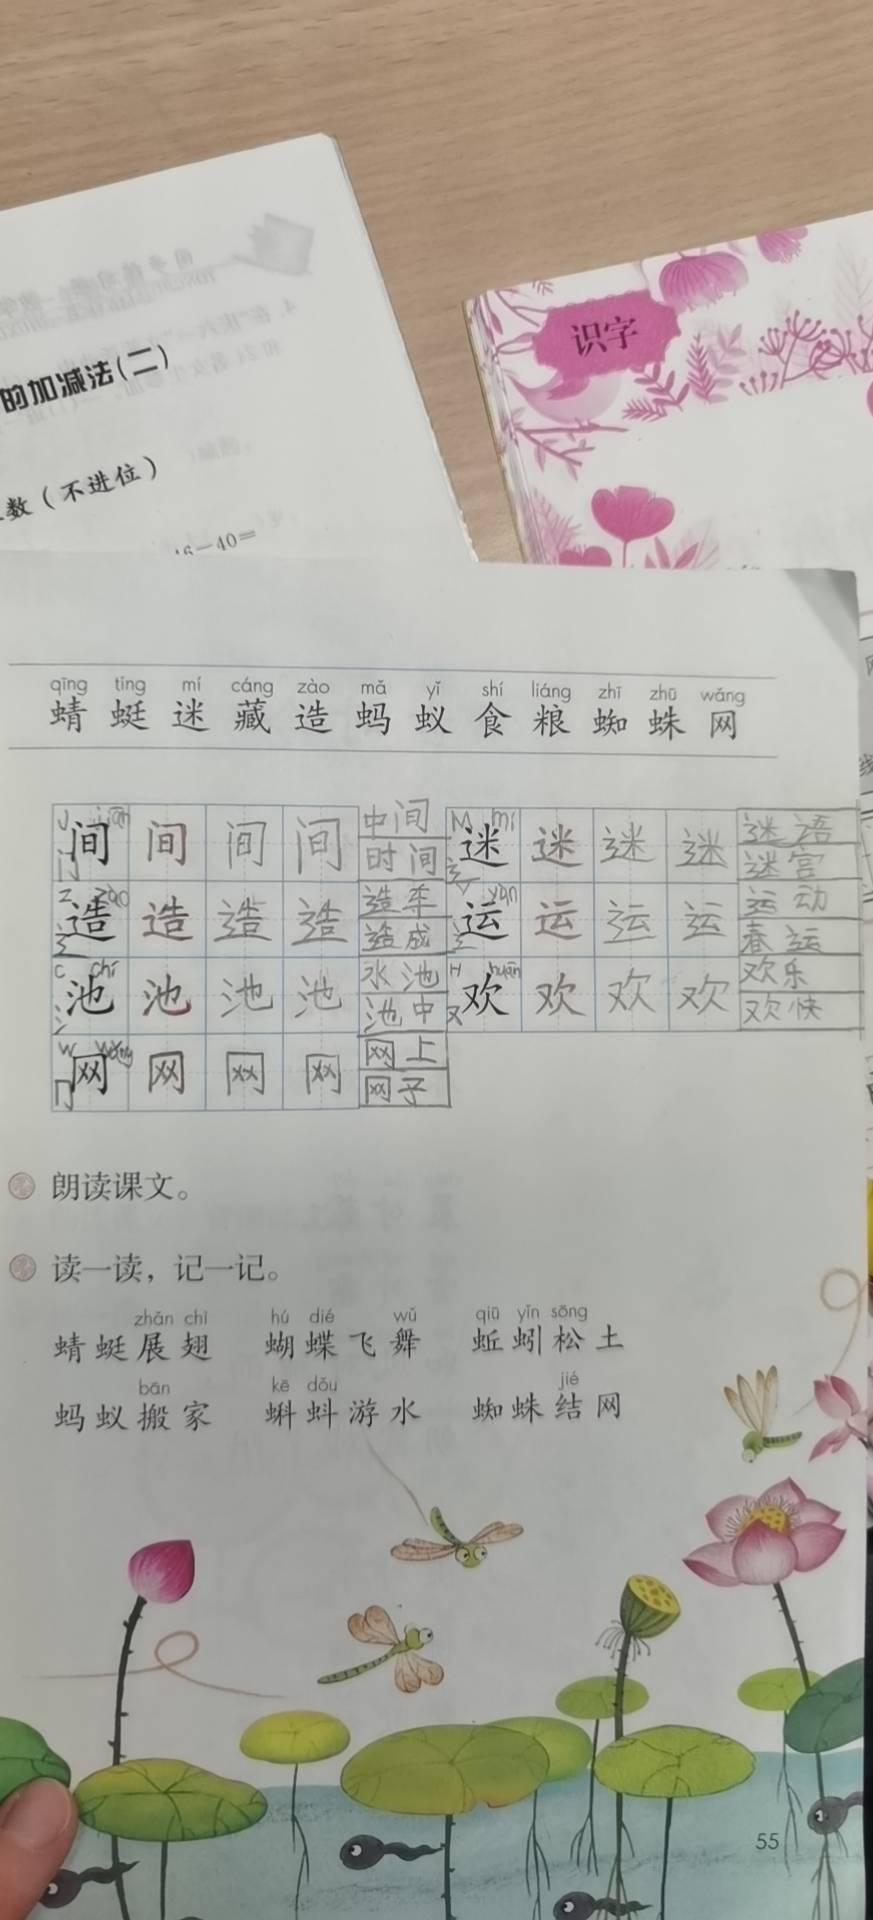 识字
的加减法(二)
数(不进位)
16-40=
qīng tíng mí cáng zào mǎ yǐ shí liáng zhī zhū wǎng
蜻 蜓 迷 藏 造 蚂 蚁 食 粮 蜘 蛛 网
J jiān M mí
间 间 间 间 中间 迷 迷 迷 迷 谜语
门 时间 辶 迷宫
Z zào Y yùn
造 造 造 造 造车 运 运 运 运 运动
辶 造成 辶 春运
C chí H huān
池 池 池 池 水池 欢 欢 欢 欢 欢乐
氵 池中 又 欢快
W wǎng
网 网 网 网 网上
冂 网子
朗读课文。
读一读，记一记。
zhǎn chì hú dié wǔ qiū yǐn sōng
蜻蜓展翅 蝴蝶飞舞 蚯蚓松土
bān kē dǒu jié
蚂蚁搬家 蝌蚪游水 蜘蛛结网
55